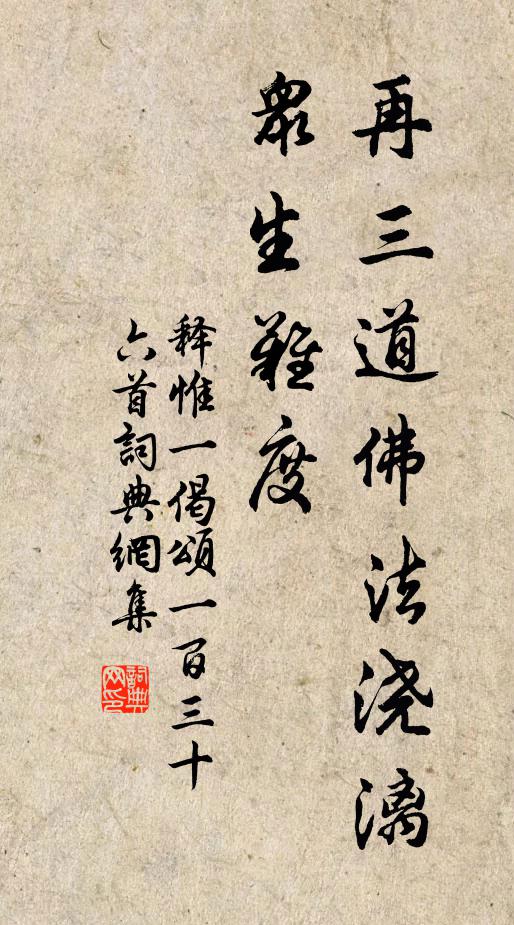 再三道佛法浇漓
眾生難度
释惟一偈頌一百三十
六首詞典網集
詞典网印